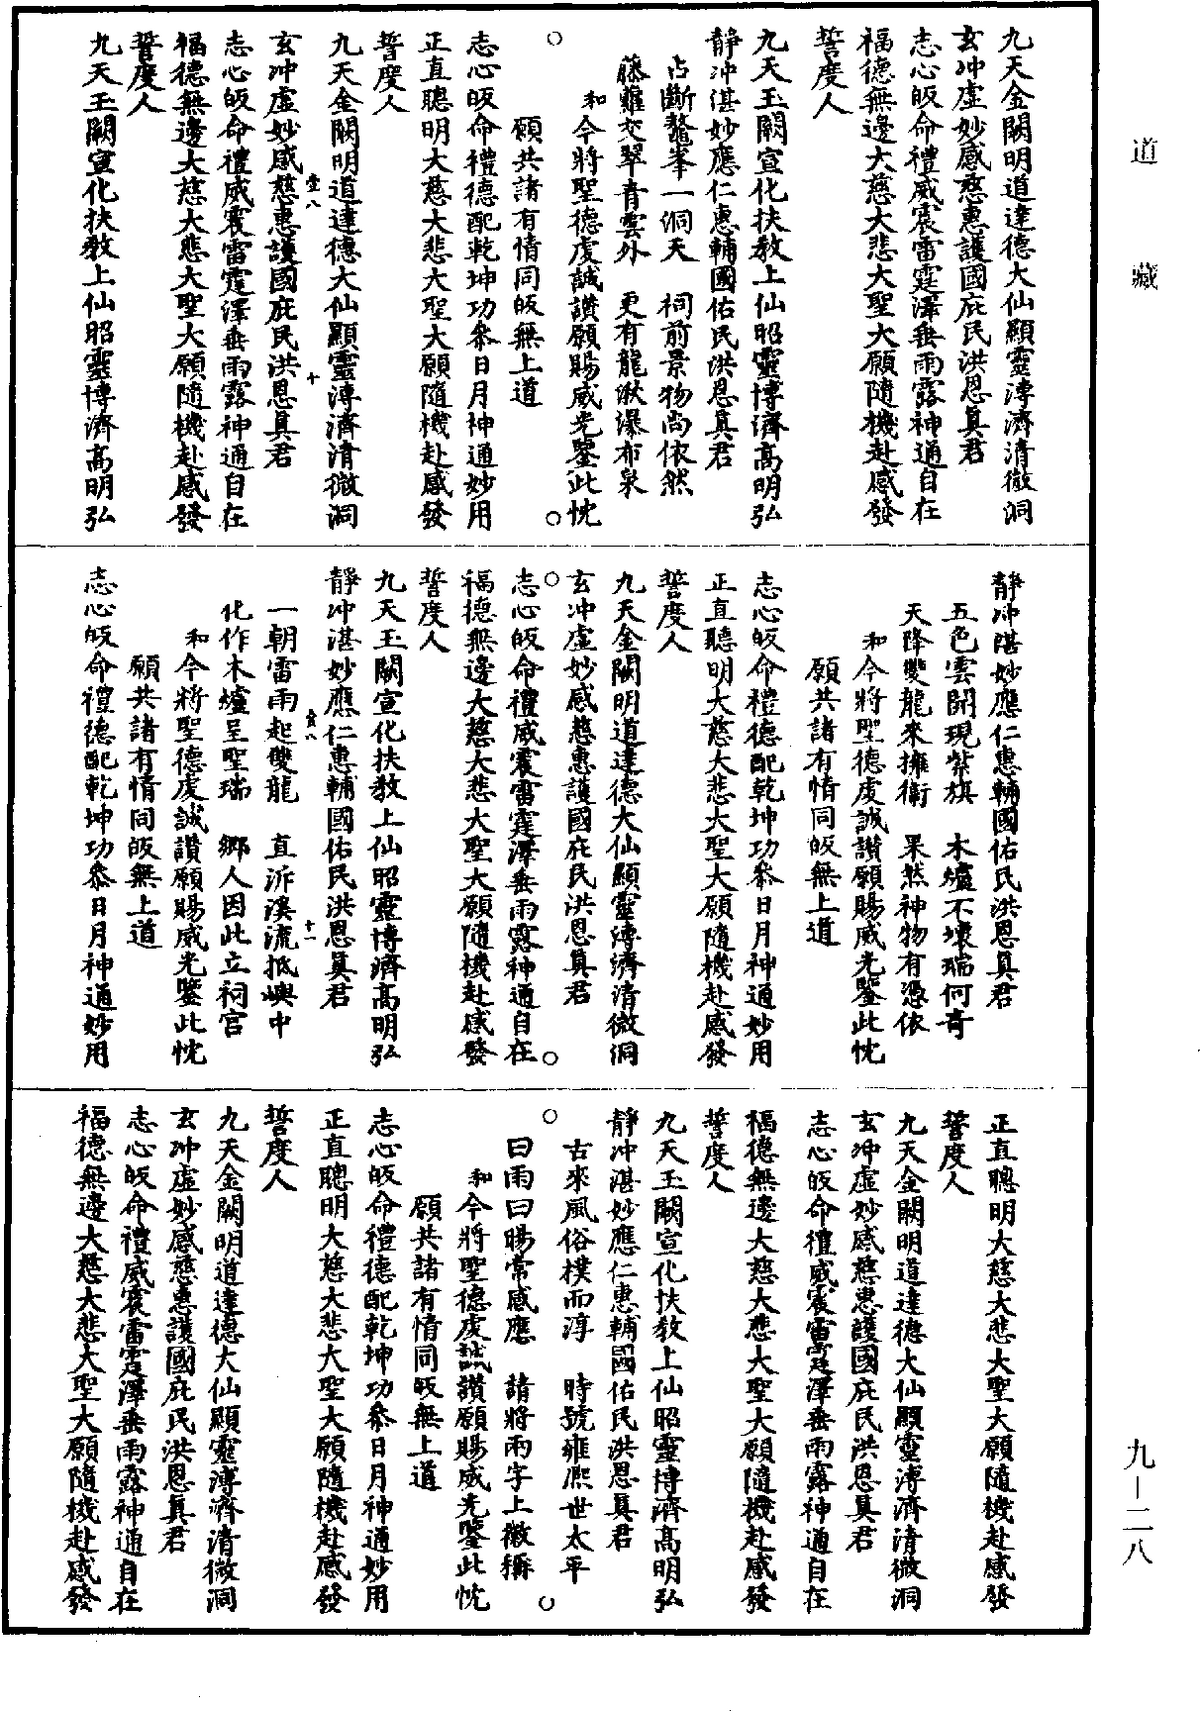 道藏
九天金闕明道達德大仙顯靈溥濟清微洞
玄沖虛妙感慈惠護國庇民洪恩真君
志心皈命禮威震雷霆澤垂雨露神通自在
福德無邊大慈大悲大聖大願隨機赴感發
誓度人
九天玉闕宣化扶教上仙昭靈博濟高明弘
靜沖湛妙應仁惠輔國佑民洪恩真君
占斷鰲峯一洞天　祠前景物尚依然
藤蘿交翠青雲外　更有龍湫瀑布泉
和今將聖德虔誠讚願賜威光鑒此忱
願共諸有情同皈無上道
○　○
志心皈命禮德配乾坤功叅日月神通妙用
正直聰明大慈大悲大聖大願隨機赴感發
誓度人
九天金闕明道達德大仙顯靈溥濟清微洞
壹八　十
玄沖虛妙感慈惠護國庇民洪恩真君
志心皈命禮威震雷霆澤垂雨露神通自在
福德無邊大慈大悲大聖大願隨機赴感發
誓度人
九天玉闕宣化扶教上仙昭靈博濟高明弘
靜沖湛妙應仁惠輔國佑民洪恩真君
五色雲開現紫旗　木爐不壞瑞何奇
天降雙龍來擁衛　果然神物有憑依
和今將聖德虔誠讚願賜威光鑒此忱
願共諸有情同皈無上道
志心皈命禮德配乾坤功叅日月神通妙用
正直聰明大慈大悲大聖大願隨機赴感發
誓度人
九天金闕明道達德大仙顯靈溥濟清微洞
玄沖虛妙感慈惠護國庇民洪恩真君
○　○
志心皈命禮威震雷霆澤垂雨露神通自在
福德無邊大慈大悲大聖大願隨機赴感發
誓度人
九天玉闕宣化扶教上仙昭靈博濟高明弘
靜沖湛妙應仁惠輔國佑民洪恩真君
壹八　十一
一朝雷雨起雙龍　直泝溪流抵嶼中
化作木爐呈聖瑞　鄉人因此立祠宫
和今將聖德虔誠讚願賜威光鑒此忱
願共諸有情同皈無上道
志心皈命禮德配乾坤功叅日月神通妙用
正直聰明大慈大悲大聖大願隨機赴感發
誓度人
九天金闕明道達德大仙顯靈溥濟清微洞
玄沖虛妙感慈惠護國庇民洪恩真君
志心皈命禮威震雷霆澤垂雨露神通自在
福德無邊大慈大悲大聖大願隨機赴感發
誓度人
九天玉闕宣化扶教上仙昭靈博濟高明弘
靜沖湛妙應仁惠輔國佑民洪恩真君
古來風俗樸而淳　時號雍熙世太平
○　○
曰雨曰暘常感應　請將兩字上徽稱
和今將聖德虔誠讚願賜威光鑒此忱
願共諸有情同皈無上道
志心皈命禮德配乾坤功叅日月神通妙用
正直聰明大慈大悲大聖大願隨機赴感發
誓度人
九天金闕明道達德大仙顯靈溥濟清微洞
玄沖虛妙感慈惠護國庇民洪恩真君
志心皈命禮威震雷霆澤垂雨露神通自在
福德無邊大慈大悲大聖大願隨機赴感發
九—二八